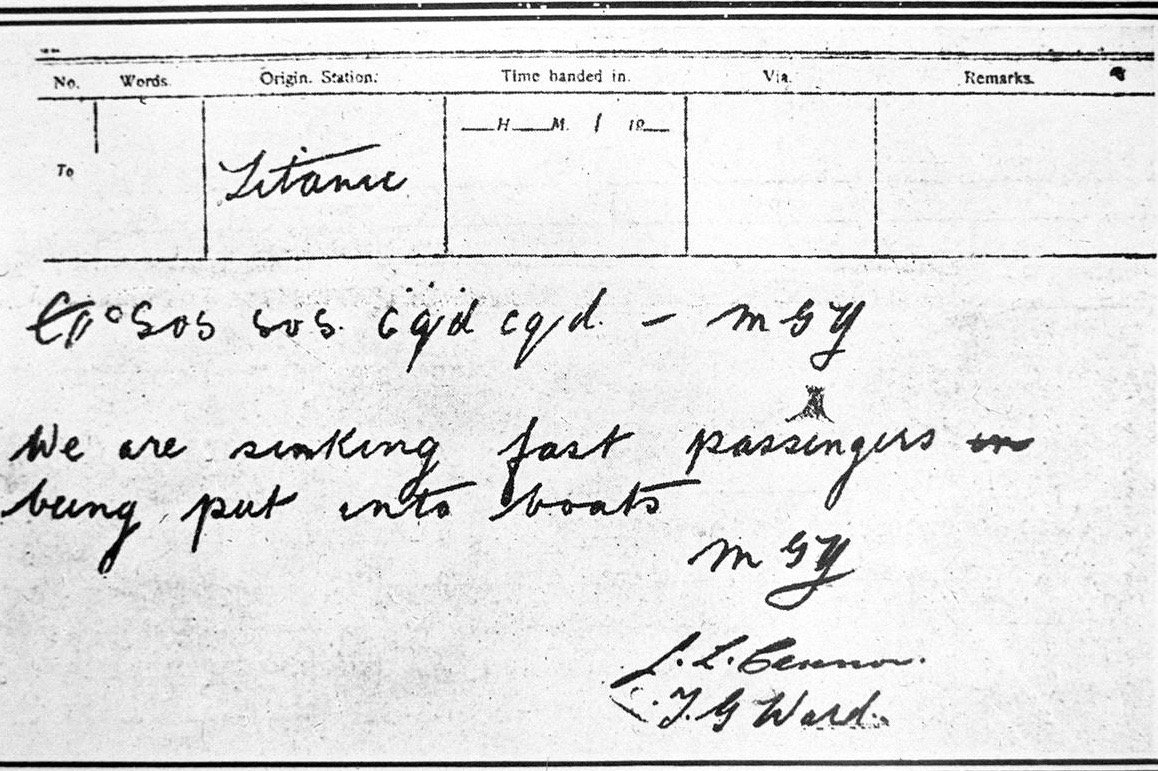 No. Words. Origin. Station. Time handed in. Via. Remarks.
H. M. / 19
To
Titanic
Sos sos. cqd cqd. — MGY
We are sinking fast passengers
being put into boats
MGY
T G Ward.